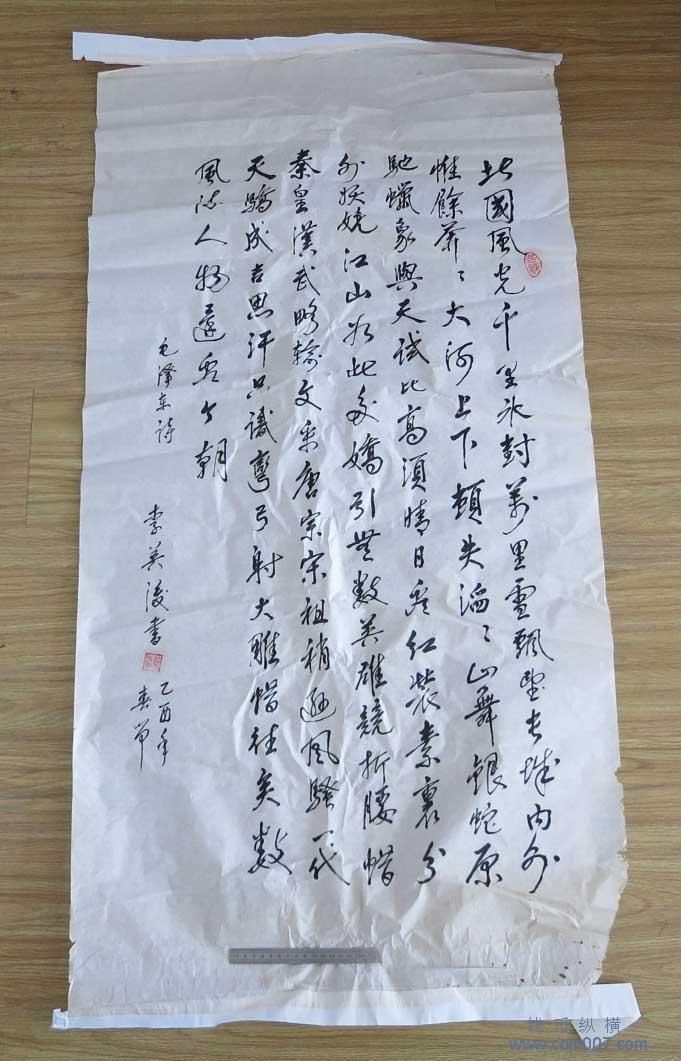 北國風光千里冰封萬里雪飄望长城内外
惟餘莽々大河上下頓失滔々山舞銀蛇原
馳蠟象與天試比高須晴日看红裝素裹分
外妖嬈江山如此多嬌引無數英雄競折腰惜
秦皇漢武略输文采唐宗宋祖稍遜風騷一代
天驕成吉思汗只識彎弓射大雕惜往矣數
風流人物還看今朝
毛澤东詩
李英浚書
乙酉年
春节
钱币纵横
www.coin007.com